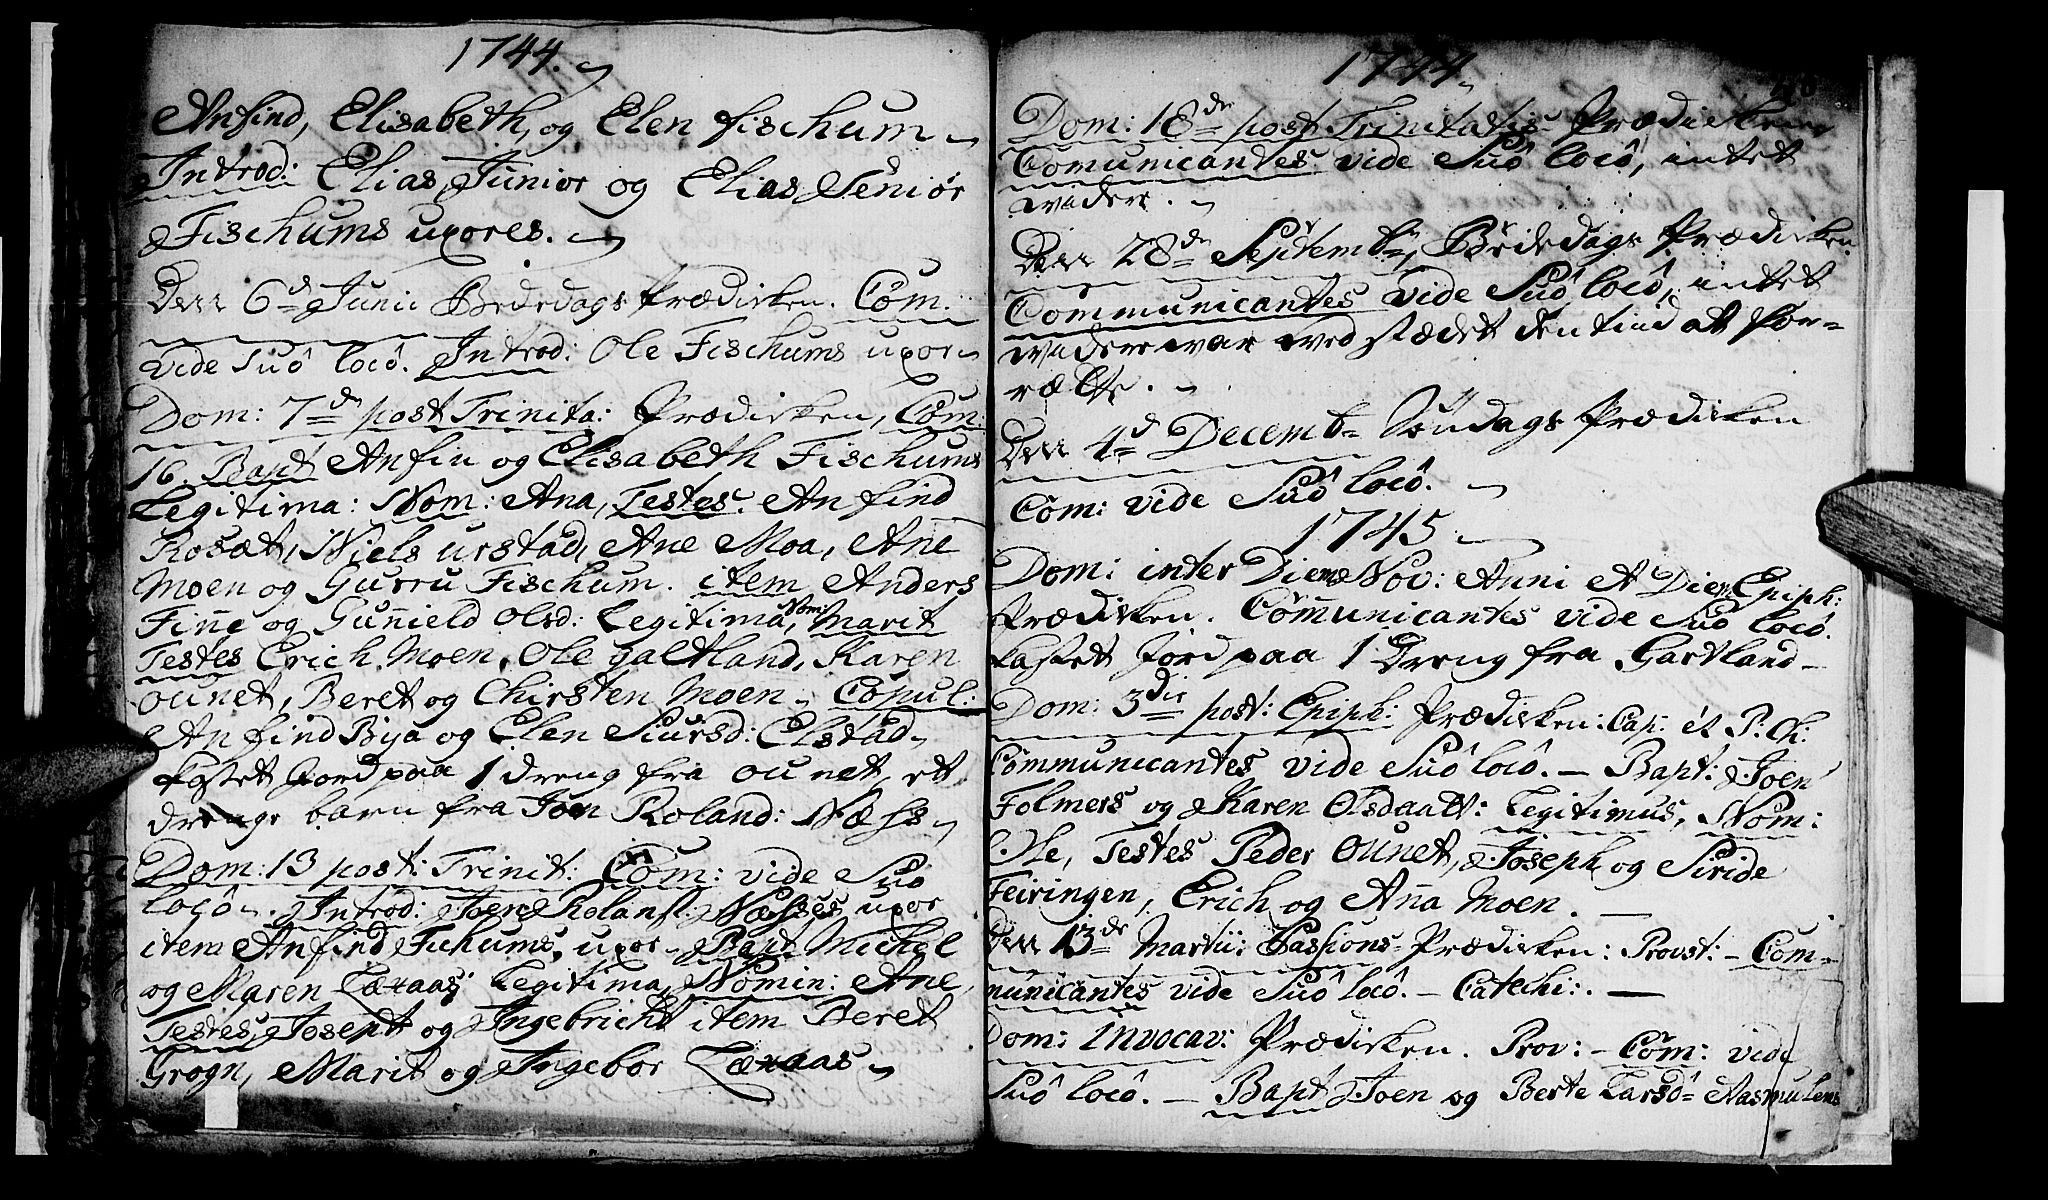 1744.
Anfind, Elisabeth, og Elen Fischum
Introd: Elias Junior og Elias Senior
Fischums uxores.
Den 6d Junii Bededags Prædicken. Com:
vide Suô locô. Introd: Ole Fischums uxor
Dom: 7de post Trinita: Prædicken, Com:
16. Bapt Anfin og Elisabeth Fischums
Legitima: Nom: Ana, Testes. Anfind
Rosæt, Niels urstad, Ane Moa, Ane
Moen og Gurru Fischum. item Anders
Finne og Gunield Olsd: Legitima, Nom: Marit
Testes Erich Moen, Ole galtland, Karen
ounet, Beret og Chirsten Moen. Copul:
Anfind Bya og Elen Siursd: Elstad
kastet Jord paa 1 dreng fra ounet, ett
drenge barn fra Joen Roland: Næss
Dom: 13 post: Trinit: Com: vide Suô
locô. Introd: Joen Rolansl: Næsses uxor
item Anfind Fichums, uxor Bapt Michel
og Maren aas Legitima, Nomin: Ane,
Testes Joseph og Ingebricht item Beret
Grogn, Marit og Ingebor aas
1744
Dom: 18de post Trinitatis Prædicken
Comunicantes vide Suô locô, intet
videre.
Den 28de Septemb:, Bededags Prædicken.
Communicantes vide Suô locô, intet
videre var ved stædett den tiid at for-
rætte.
Den 4d Decemb: Søndags Prædicken
Com: vide Suô locô.
1745.
Dom: inter Diem Nov: Anni A Diem Epiph:
Prædicken. Comunicantes vide Suô locô.
kastett Jord paa 1 Dreng fra Gartland
Dom: 3die post: Epiph: Prædicken: Cap: et P: Ch:
Communicantes vide Suô locô. — Bapt: Joen
Folmers og Karen Olsdaatt: Legitimus, Nom:
Ole, Testes Peder Ounet, Joseph og Siride
Feiringen, Erich og Anna Moen.
Den 13de Martii: Passions-Prædicken: Provst: — Com-
municantes vide Suô locô. — Catechi:. —
Dom: Invocav: Prædicken. Prov: — Com: vide
Suô locô. — Bapt Joen og Berte Larsd: Aasmulens